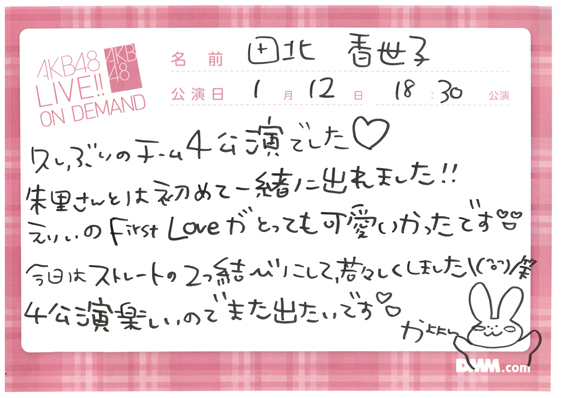 AKB48
LIVE!!
ON DEMAND
AKB
48
名前 田北 香世子
公演日 1月12日 18:30公演
久しぶりのチーム4公演でした♡
朱里さんとは初めて一緒に出れました!!
えりぃのFirst Loveがとっても可愛いかったです♡♡
今日はストレートの2つ結びにして、若々しくしました\(^o^)/笑
4公演楽しいのでまた出たいです♡♡
かよよん
DMM.com